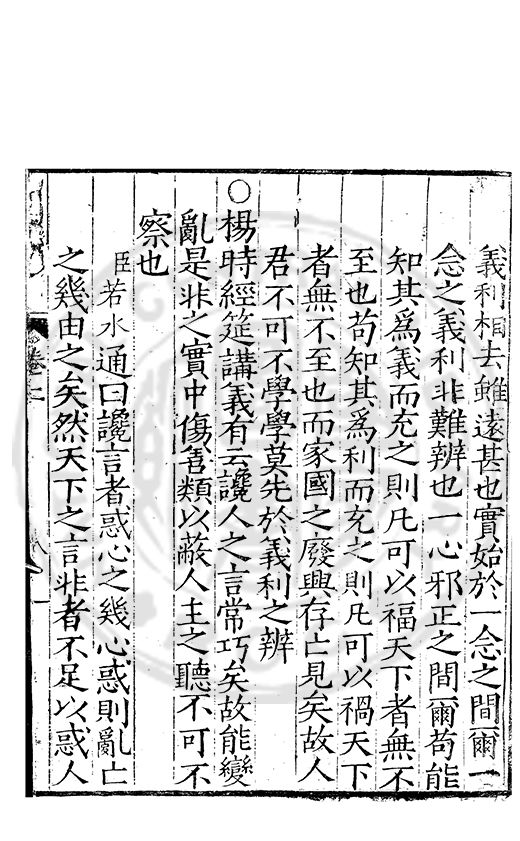 義利相去雖遠甚也實始於一念之間爾一
念之義利非難辨也一心邪正之間爾苟能
知其爲義而充之則凡可以福天下者無不
至也苟知其爲利而充之則凡可以禍天下
者無不至也而家國之廢興存亡見矣故人
君不可不學學莫先於義利之辨
○楊時經筵講義有云讒人之言常巧矣故能變
亂是非之實中傷善類以蔽人主之聽不可不
察也
臣若水通曰讒言者惑心之幾心惑則亂亡
之幾由之矣然天下之言非者不足以惑人